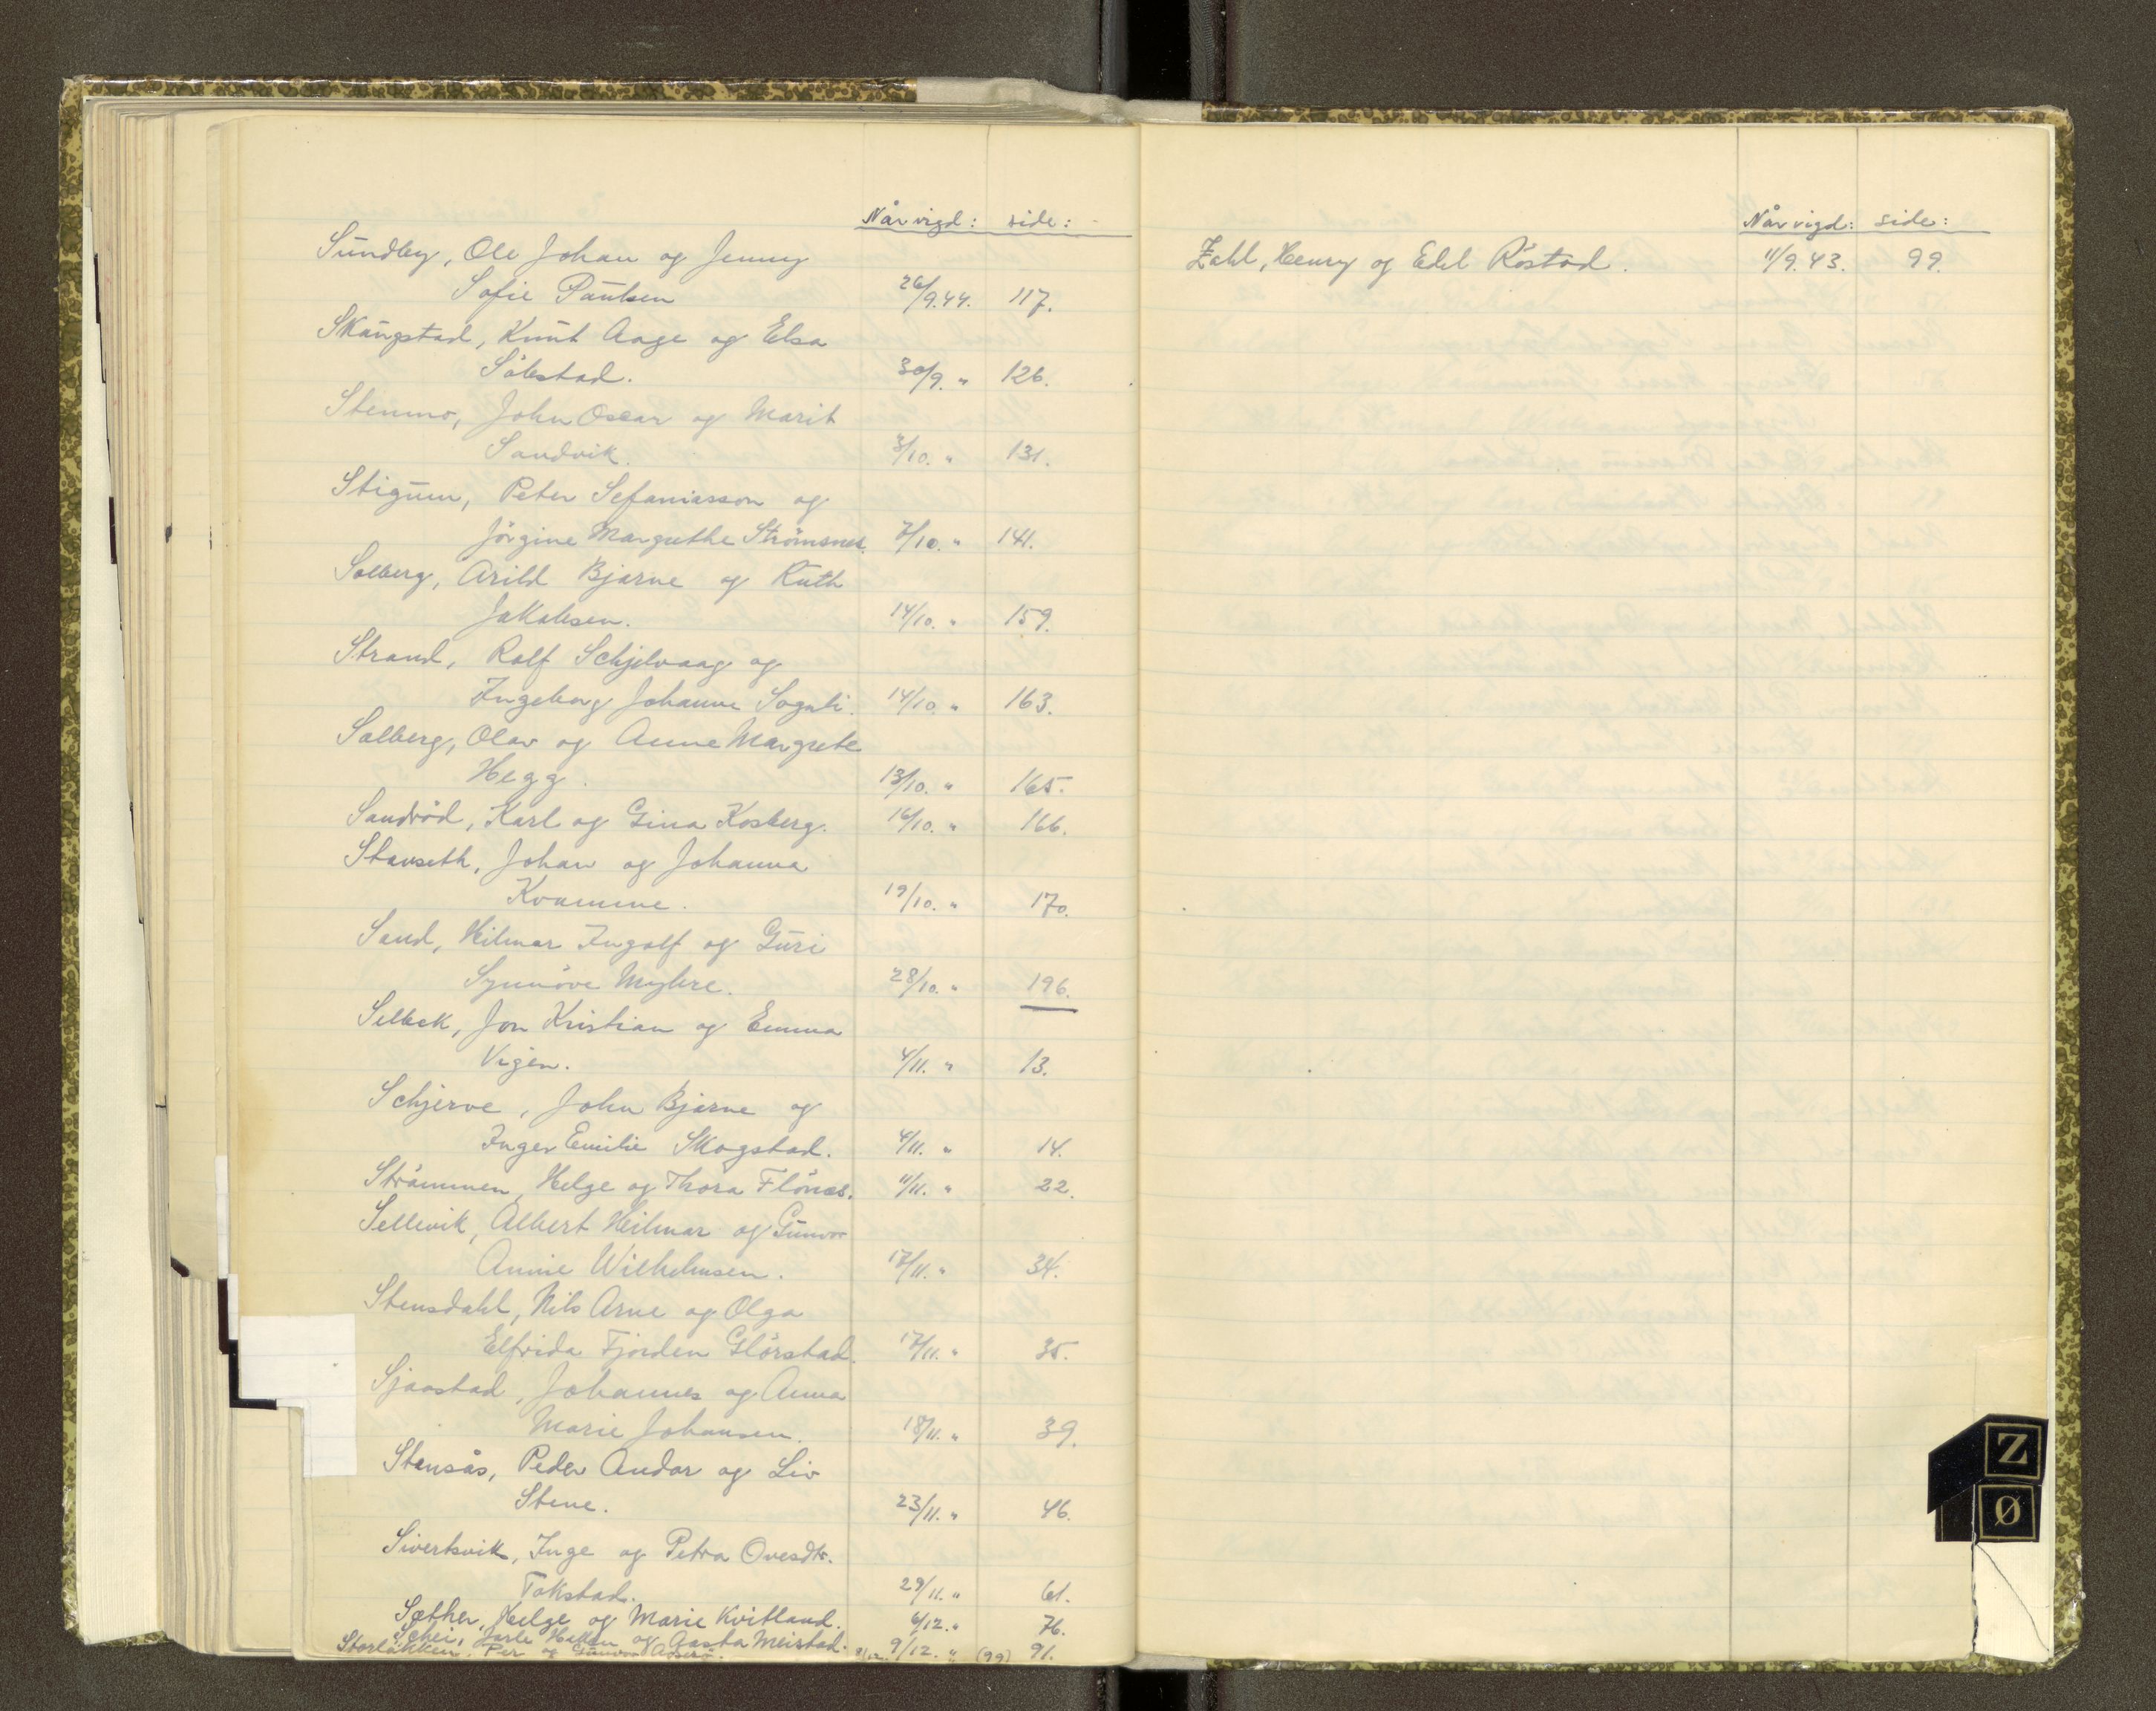 Når vigd: side:
Sundby, Ole Johan og Jenny
Sofie Paulsen 26/9.44. 117.
Skaugstad, Knut Aage og Elsa
Sølestad. 30/9. " 126.
Stenmo, John Oscar og Marit
Sandvik. 3/10. " 131.
Stigum, Peter Sefaniasson og
Jörgine Margrethe Strömsnes. 7/10. " 141.
Solberg, Arild Bjarne og Ruth
Jakobsen. 14/10. " 159.
Strand, Rolf Schjelvaag og
Ingeborg Johanne Sognli. 14/10. " 163.
Salberg, Olav og Anne Margrete
Hegg. 13/10. " 165.
Sandröd, Karl og Gina Kosberg. 16/10. " 166.
Stavseth, Johan og Johanna
Kvamme. 19/10. " 170.
Sand, Hilmar Ingolf og Guri
Synnöve Myhre. 28/10. " 196.
Selbek, Jon Kristian og Emma
Vigen. 4/11. " 13.
Schjerve, John Bjarne og
Inger Emilie Skogstad. 4/11. " 14.
Strömmen, Helge og Thora Flönes. 11/11. " 22.
Sellevik, Albert Hilmar og Gunvor
Annie Wilhelmsen. 17/11. " 34.
Stensdahl, Nils Arne og Olga
Elfrida Fjorden Glörstad. 17/11. " 35.
Sjaastad, Johannes og Anna
Marie Johansen. 18/11. " 39.
Stensås, Peder Andor og Liv
Stene. 23/11. " 46.
Sivertsvik, Inge og Petra Ovesdtr.
Tokstad. 29/11. " 61.
Sæther, Helge og Marie Kvitland. 6/12. " 76.
Schei, Jarle Hallan og Aasta Meistad. 9/12. " 91.
Storløkken, Per og Gunvor 9/12. (99)
Når vigd: side:
Zahl, Henry og Edel Röstad. 11/9.43. 99.
Z
Ø